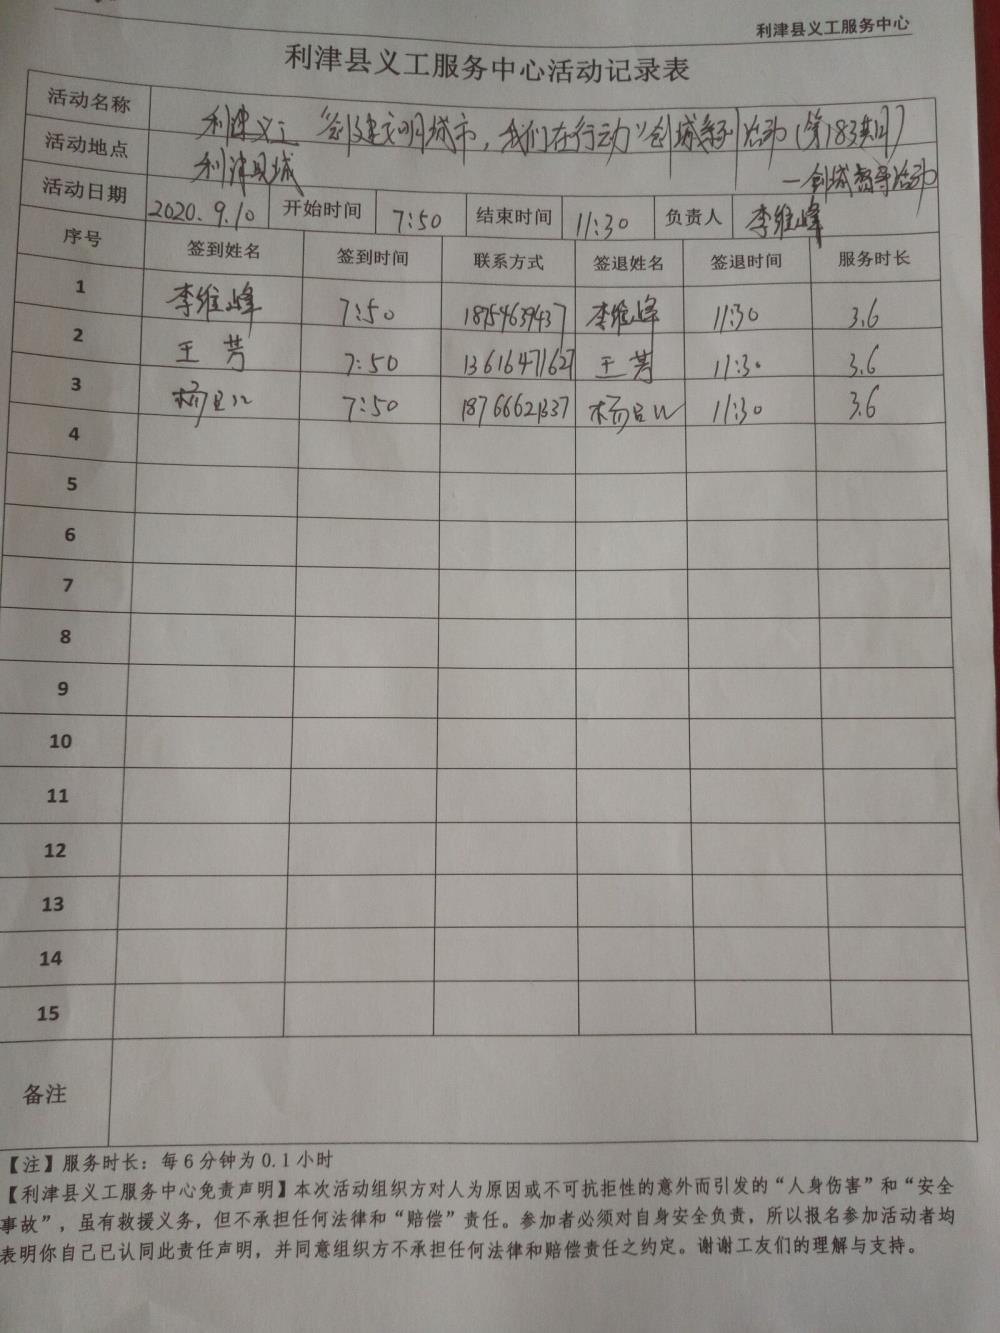 利津县义工服务中心
利津县义工服务中心活动记录表
活动名称 利津义工"创建文明城市，我们在行动"创城系列活动(第183期)
活动地点 利津县城 —创城督导活动
活动日期 2020.9.10 开始时间 7:50 结束时间 11:30 负责人 李维峰
序号 签到姓名 签到时间 联系方式 签退姓名 签退时间 服务时长
1 李维峰 7:50 18754639437 李维峰 11:30 3.6
2 王芳 7:50 13616471627 王芳 11:30 3.6
3 杨 7:50 18766621337 杨 11:30 3.6
4
5
6
7
8
9
10
11
12
13
14
15
备注
【注】服务时长：每6分钟为0.1小时
【利津县义工服务中心免责声明】本次活动组织方对人为原因或不可抗拒性的意外而引发的“人身伤害”和“安全
事故”，虽有救援义务，但不承担任何法律和“赔偿”责任。参加者必须对自身安全负责，所以报名参加活动者均
表明你自己已认同此责任声明，并同意组织方不承担任何法律和赔偿责任之约定。谢谢工友们的理解与支持。